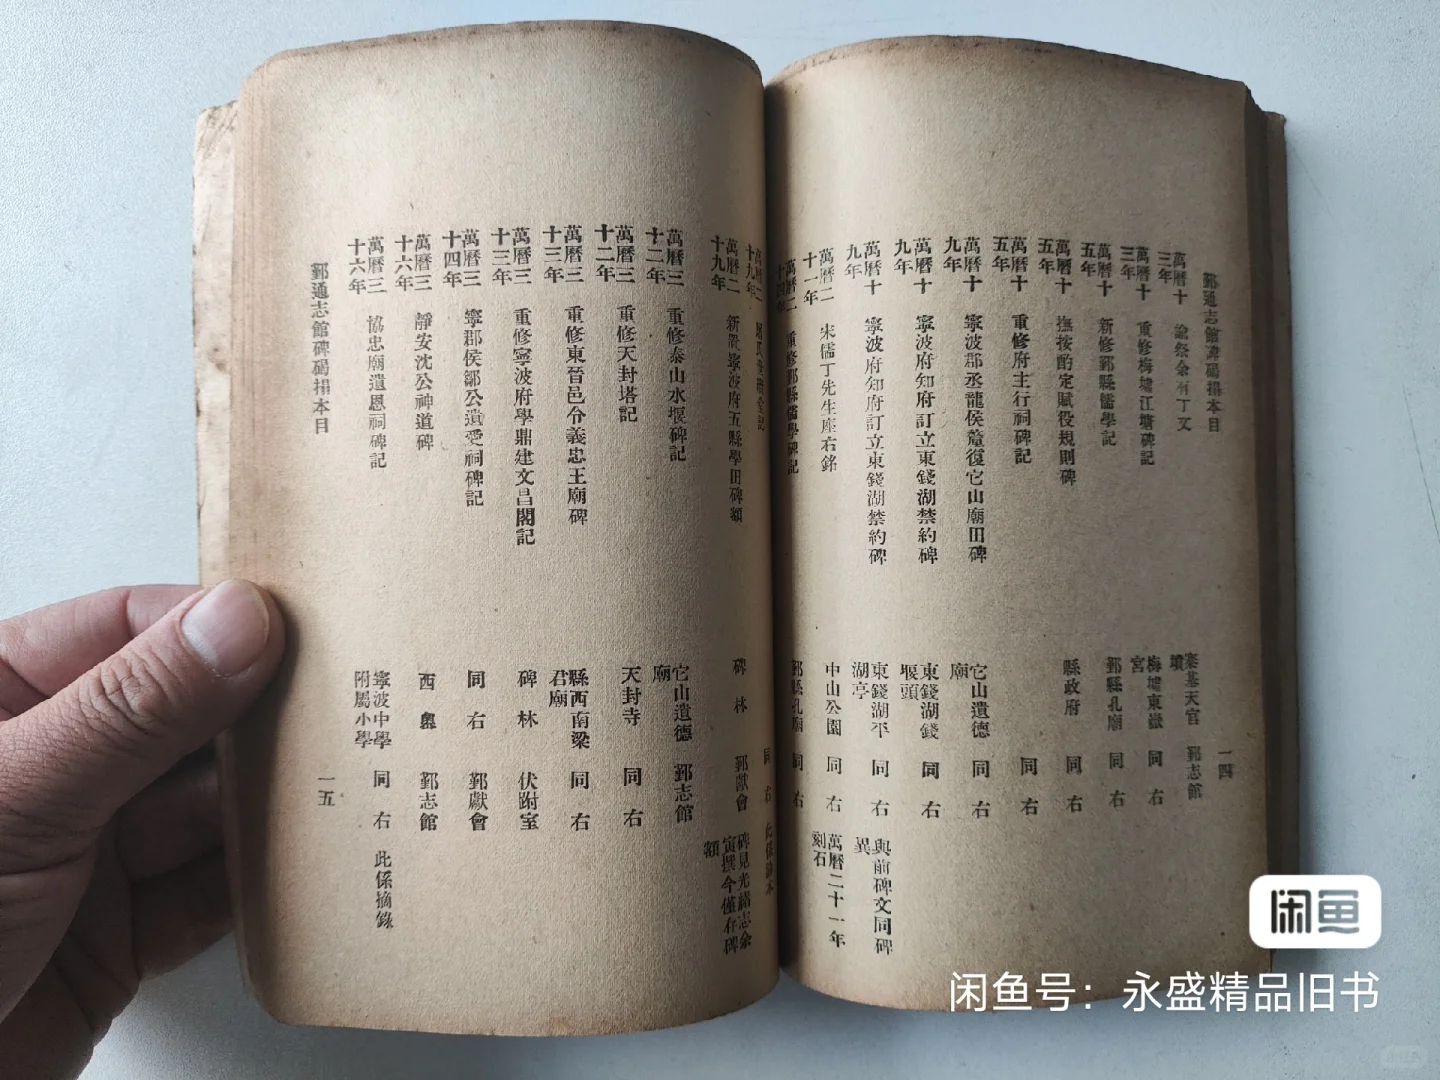 鄞通志館碑碣搨本目
一四
萬曆十三年 諭祭余有丁文 秦基天官墳 鄞志館
萬曆十三年 重修梅墟江塘碑記 梅墟東嶽宮 同右
萬曆十五年 新修鄞縣儒學記 鄞縣孔廟 同右
萬曆十五年 撫按酌定賦役規則碑 縣政府 同右
萬曆十五年 重修府主行祠碑記 同右
萬曆十九年 寧波郡丞龍侯釐復它山廟田碑 它山遺德廟 同右
萬曆十九年 寧波府知府訂立東錢湖禁約碑 東錢湖錢堰頭 同右
萬曆十九年 寧波府知府訂立東錢湖禁約碑 東錢湖平湖亭 同右 與前碑文同碑異
萬曆二十一年 宋儒丁先生座右銘 中山公園 同右 萬曆二十一年刻石
萬曆二十四年 重修鄞縣儒學碑記 鄞縣孔廟 同右
萬曆二十九年 同右
萬曆二十九年 新置寧波府五縣學田碑額 碑林 鄞獻會 碑見光緒志余寅撰今僅存碑額
萬曆三十二年 重修泰山水堰碑記 它山遺德廟 鄞志館
萬曆三十二年 重修天封塔記 天封寺 同右
萬曆三十三年 重修東晉邑令義忠王廟碑 縣西南梁君廟 同右
萬曆三十三年 重修寧波府學鼎建文昌閣記 碑林 伏跗室
萬曆三十四年 寧郡侯鄒公遺愛祠碑記 同右 鄞獻會
萬曆三十六年 靜安沈公神道碑 西奧 鄞志館
萬曆三十六年 協忠廟遺恩祠碑記 寧波中學附屬小學 同右 此係摘錄
鄞通志館碑碣搨本目
一五
闲鱼
闲鱼号：永盛精品旧书